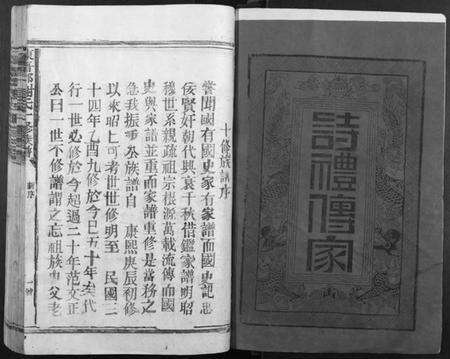 詩禮傳家
十修族譜序
嘗聞國有國史家有家譜而國史記忠
佞賢奸朝代興衰千秋借鑑家譜明昭
穆世系親疏祖宗根源萬載流傳而國
史與家譜並重而家譜重修是當務之
急我振 公族譜自 康熙庚辰初修
以來昭上可考世世修明至 民國三
十四年乙酉九修於今已五十年 代
行一世必修於今超過二十年范文正
公曰一世不修譜謂之忘祖族 父老